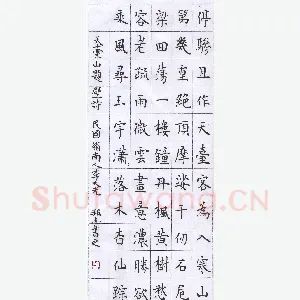 停驂且作天臺客為入寒山
萬幾重絶頂摩娑千仞石危
梁回蕩一樓鐘丹楓黃樹愁
容老疏雨微雲畫意濃勝欲
乘風尋玉宇瀟落木杳仙踪
天臺山題壁詩 民國嶺南人李 書之
Shufawang.CN